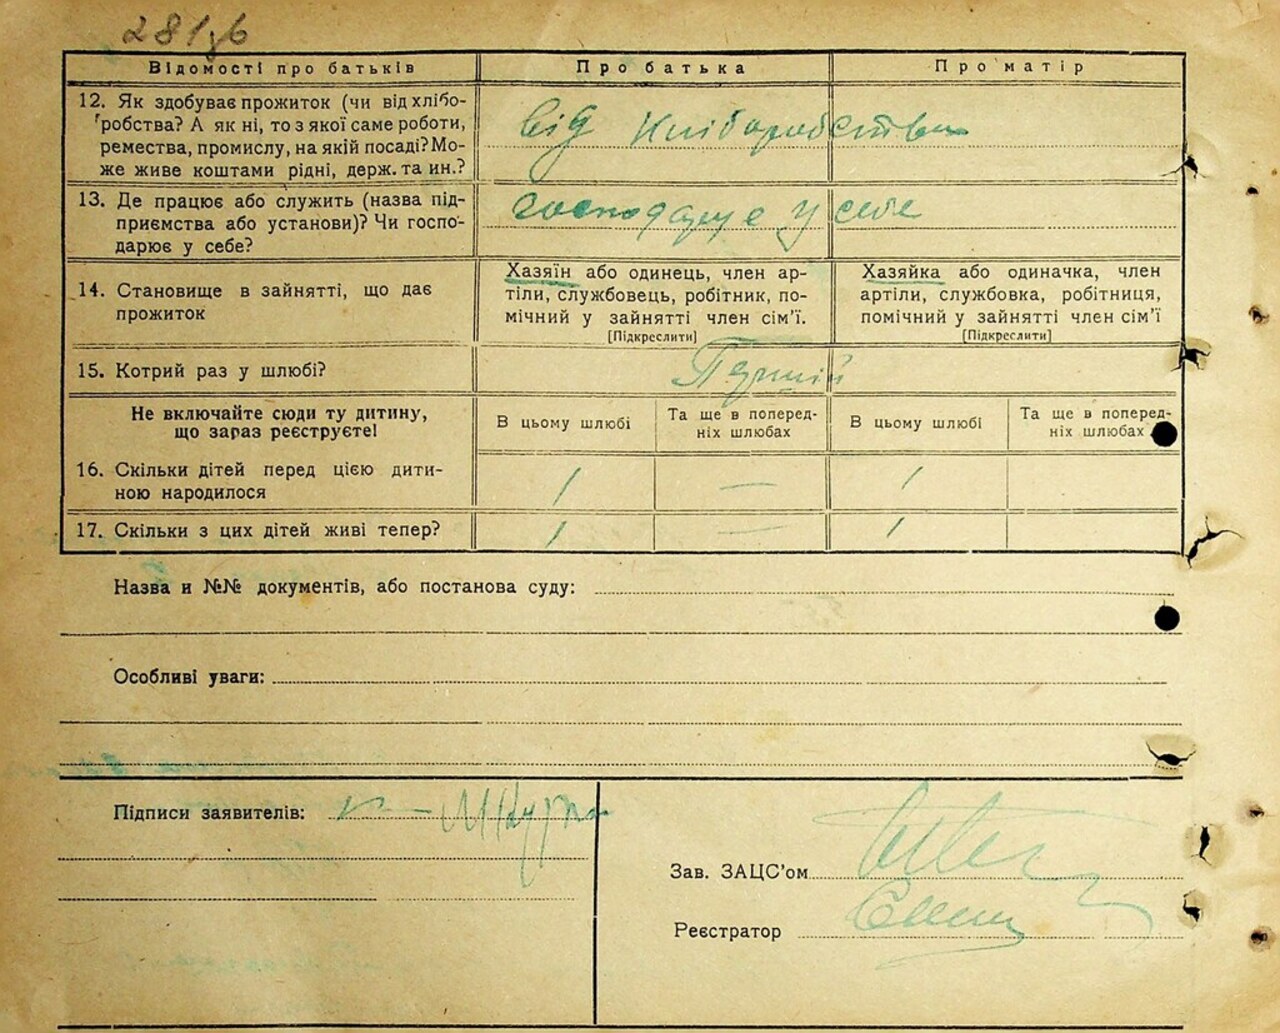 281зв
Відомості про батьків Про батька Про матір
12. Як здобуває прожиток (чи від хлібо-
робства? А як ні, то з якої саме роботи,
ремества, промислу, на якій посаді? Мо-
же живе коштами рідні, держ. та ин.?
від хліборобства
13. Де працює або служить (назва під-
приємства або установи)? Чи госпо-
дарює у себе?
господарує у себе
14. Становище в зайнятті, що дає
прожиток
Хазяїн або одинець, член ар-
тіли, службовець, робітник, по-
мічний у зайнятті член сім'ї.
[Підкреслити]
Хазяйка або одиначка, член
артіли, службовка, робітниця,
помічний у зайнятті член сім'ї
[Підкреслити]
15. Котрий раз у шлюбі?
Перший
Не включайте сюди ту дитину,
що зараз реєструєте!
В цьому шлюбі
Та ще в поперед-
ніх шлюбах
В цьому шлюбі
Та ще в поперед-
ніх шлюбах
16. Скільки дітей перед цією дити-
ною народилося
1 — 1
17. Скільки з цих дітей живі тепер?
1 — 1
Назва и №№ документів, або постанова суду:
Особливі уваги:
Підписи заявителів:
Зав. ЗАЦС'ом
Реєстратор